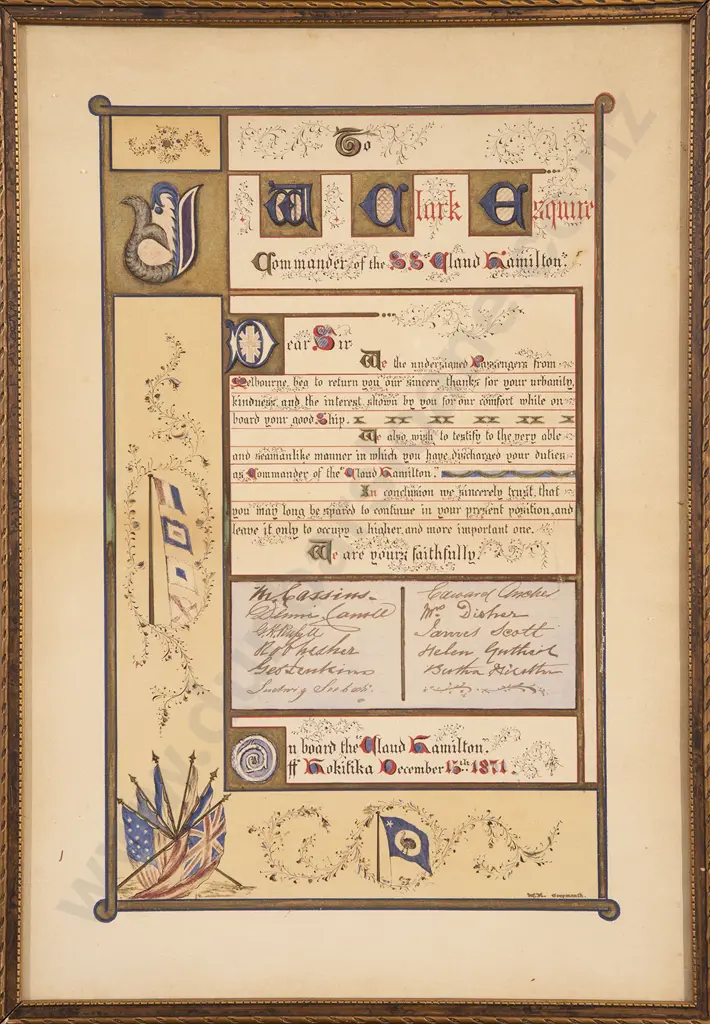 To
W Clark Esquire
Commander of the SS "Claud Hamilton".
Dear Sir
We the undersigned Passengers from
Melbourne, beg to return you our sincere thanks for your urbanity,
kindness and the interest shown by you for our comfort while on
board your good Ship.
We also wish to testify to the very able
and seamanlike manner in which you have discharged your duties
as Commander of the "Claud Hamilton."
In conclusion we sincerely trust, that
you may long be spared to continue in your present position, and
leave it only to occupy a higher, and more important one.
We are yours faithfully.
M. Cassins
Edward
Mrs Disher
James Scott
Rob Disher
Helen Guthrie
Geo Jenkins
Bertha
Ludwig
On board the "Claud Hamilton".
off Hokitika December 15th 1871.